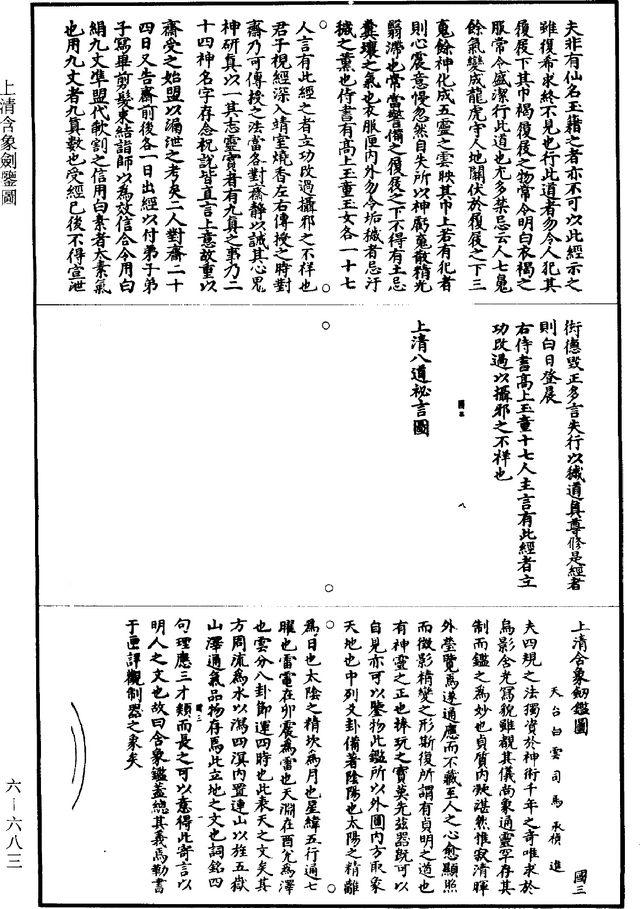 上清含象劍鑒圖
夫非有仙名玉籍之者亦不可以此經示之
雖復希求終不見也行此道者勿令人犯其
履屐下其巾褐履屐之物常令明白衣褐之
服常令盛潔行此道也尤多禁忌云人七鬼
餘氣變成龍虎守人地關伏於履屐之下三
䰟餘神化成五靈之雲映其巾上若有犯者
則心震意慢忽然自失所以神虧䰟散精光
翳滯也常當警備之履屐之下不得有土忌
糞壤之氣也衣服匣内外勿令垢穢者忌汙
穢之薰也侍書有髙上玉童玉女各一十七
人言有此經之者立功改過攝邪之不祥也
君子視經深入靖室燒香左右傳授之時對
齋乃可傳授之法當各對齋靜以誠其心思
神研真以一其志靈寶者有九真之事乃二
十四神名字存念祝説皆直言上意故重以
齋受之始盟以漏泄之考矣二人對齋二十
四日又告齋前後各一日出經以付弟子弟
子寫畢剪髮束結詣師以為效信合今用白
絹九丈準盟代歃割之信用白素者太素氣
也用九丈者九真數也受經已後不得宣泄
衒德毁正多言失行以穢道真尊修是經者
則白日登晨
右侍書髙上玉童十七人主言有此經者立
功改過以攝邪之不祥也
上清八道祕言圖
上清含象劒鑑圖
天台白雲司馬承禎進
國三
夫四規之法獨資於神術千年之奇唯求於
烏影含光寫貌雖覩其儀尚象通靈罕存其
制而鑑之為妙也貞質内凝湛然惟寂清暉
外瑩覽焉遂通應而不藏至人之心愈顯照
而徵影精變之形斯復所謂有貞明之道也
有神靈之正也捧玩之寶莫先兹器既可以
自見亦可以鑒物此鑑所以外圓内方取象
天地也中列爻卦備著陰陽也太陽之精離
為日也太陰之精坎為月也星緯五行通七
曜也雷電在卯震為雷也天淵在酉兌為澤
也雲分八卦節運四時也此表天之文矣其
方周流為水以瀉四溟内置連山以旌五嶽
山澤通氣品物存焉此立地之文也詞銘四
句理應三才類而長之可以意得此寄言以
明人之文也故曰含象鑑蓋總其義焉勒書
于匣詳觀制器之象矣
六－六八三